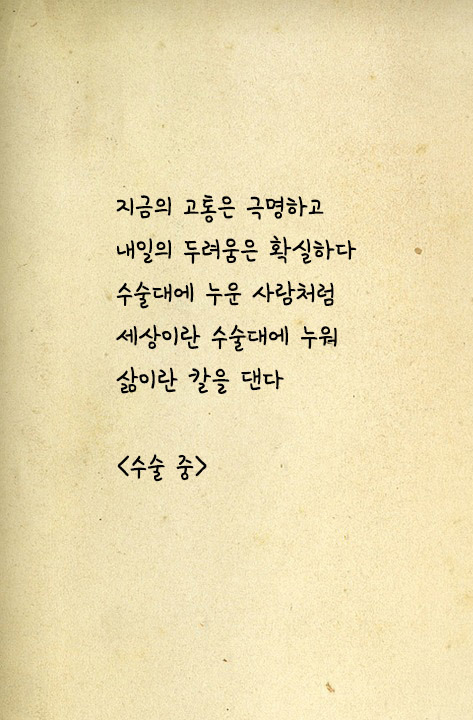 지금의 고통은 극명하고
내일의 두려움은 확실하다
수술대에 누운 사람처럼
세상이란 수술대에 누워
삶이란 칼을 댄다
<수술 중>